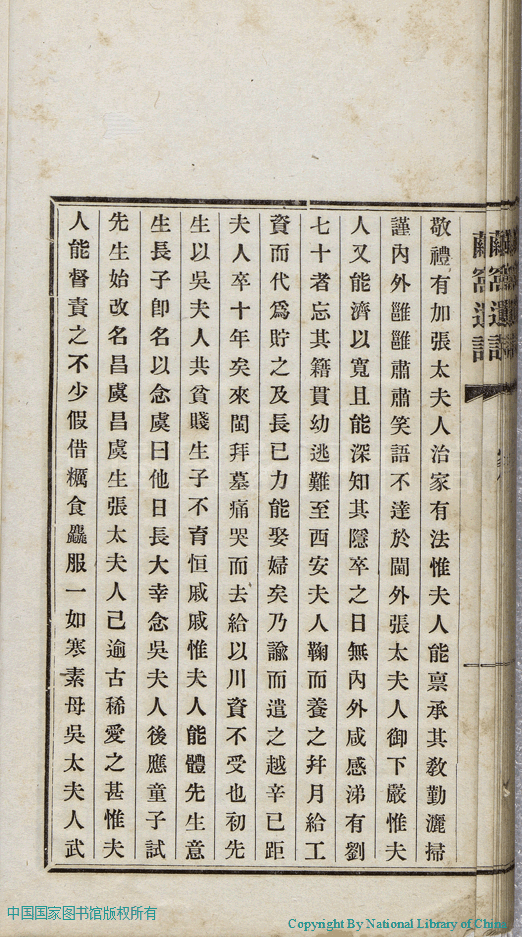 繭窩遺說
敬禮有加張太夫人治家有法惟夫人能稟承其敎勤灑掃
謹內外雝雝肅肅笑語不達於閫外張太夫人御下嚴惟夫
人又能濟以寬且能深知其隱卒之日無內外咸感涕有劉
七十者忘其籍貫幼逃難至西安夫人鞠而養之幷月給工
資而代爲貯之及長已力能娶婦矣乃諭而遣之越辛已距
夫人卒十年矣來閩拜墓痛哭而去給以川資不受也初先
生以吳夫人共貧賤生子不育恒戚戚惟夫人能體先生意
生長子卽名以念虞曰他日長大幸念吳夫人後應童子試
先生始改名昌虞昌虞生張太夫人已逾古稀愛之甚惟夫
人能督責之不少假借糲食麤服一如寒素母吳太夫人武
中国国家图书馆版权所有
Copyright By National Library of China